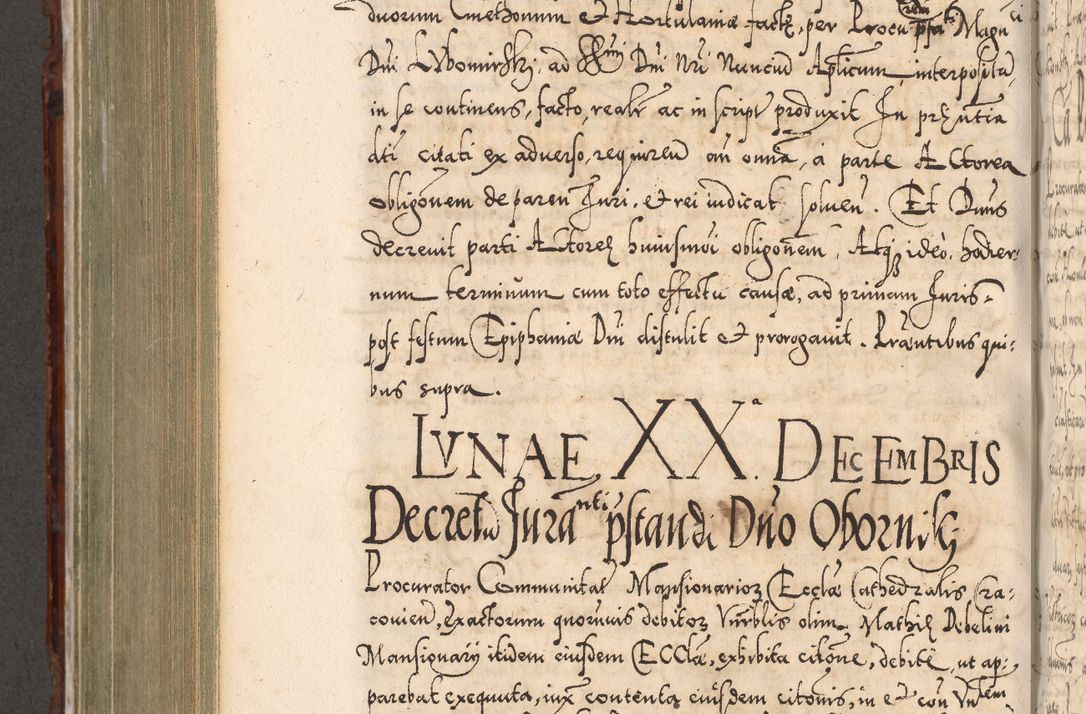 duorum Cmethonum et Hortulaniæ factæ, per Procu Magci
Dni Lubomirski, ad Dni Nri Nuncium Aplicum interposita
in se continens, facto, realr ac in script produxit In prntia
dti citati ex adverso, requiren an omnia, a parte Actorea
obligonem de paren Juri, et rei iudicat soluen. Et Dnus
decrevit parti Actoreæ huiusmoi obligonem, Atq ideo, hodier
num terminum cum toto effectu causæ, ad primam Juris=
post festum Epiphaniæ Dni distulit et prorogavit. Præntibus qui:
bus supra.
LVNAE XXa. DECEMBRIS
Decretu Juranti pstandi Dno Obornisky
Procurator Communitat Mansionarioz Eccle Cathedralis Cra:
covien, Exactorum quorumvis debitoz Vnrblis olim Mathiæ Debelini
Mansionary itidem eiusdem ECClæ, exhibita citone, debite ut ap:
parebat exequuta, iux contenta eiusdem citonis, in et con Vndem